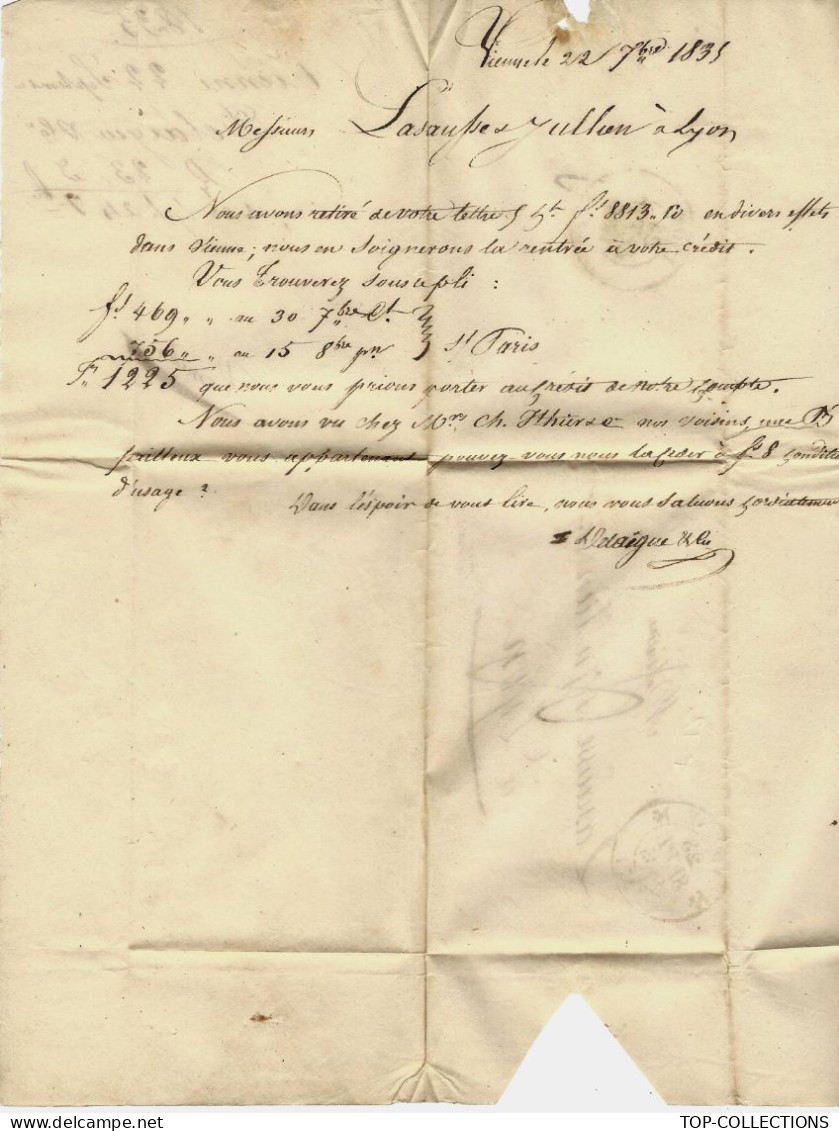 Vienne le 22 7bre 1835
Messieurs Lasausse & Jullien à Lyon
Nous avons retiré de votre lettre fs 8813.10 en divers effets
dans Vienne; nous en soignerons la rentrée à votre crédit.
Vous trouverez sous ce pli :
fs 469 „ „ au 30 7bre Ct
756 „ „ au 15 8bre pn } st Paris
Fs 1225 que nous vous prions porter au crédit de notre compte.
Nous avons vu chez Mrs Ch. nos voisins, une
vous appartenant pouvez-vous nous la céder à fs 8 conditions
d'usage ?
Dans l'espoir de vous lire, nous vous saluons cordialement
& Cie
TOP-COLLECTIONS